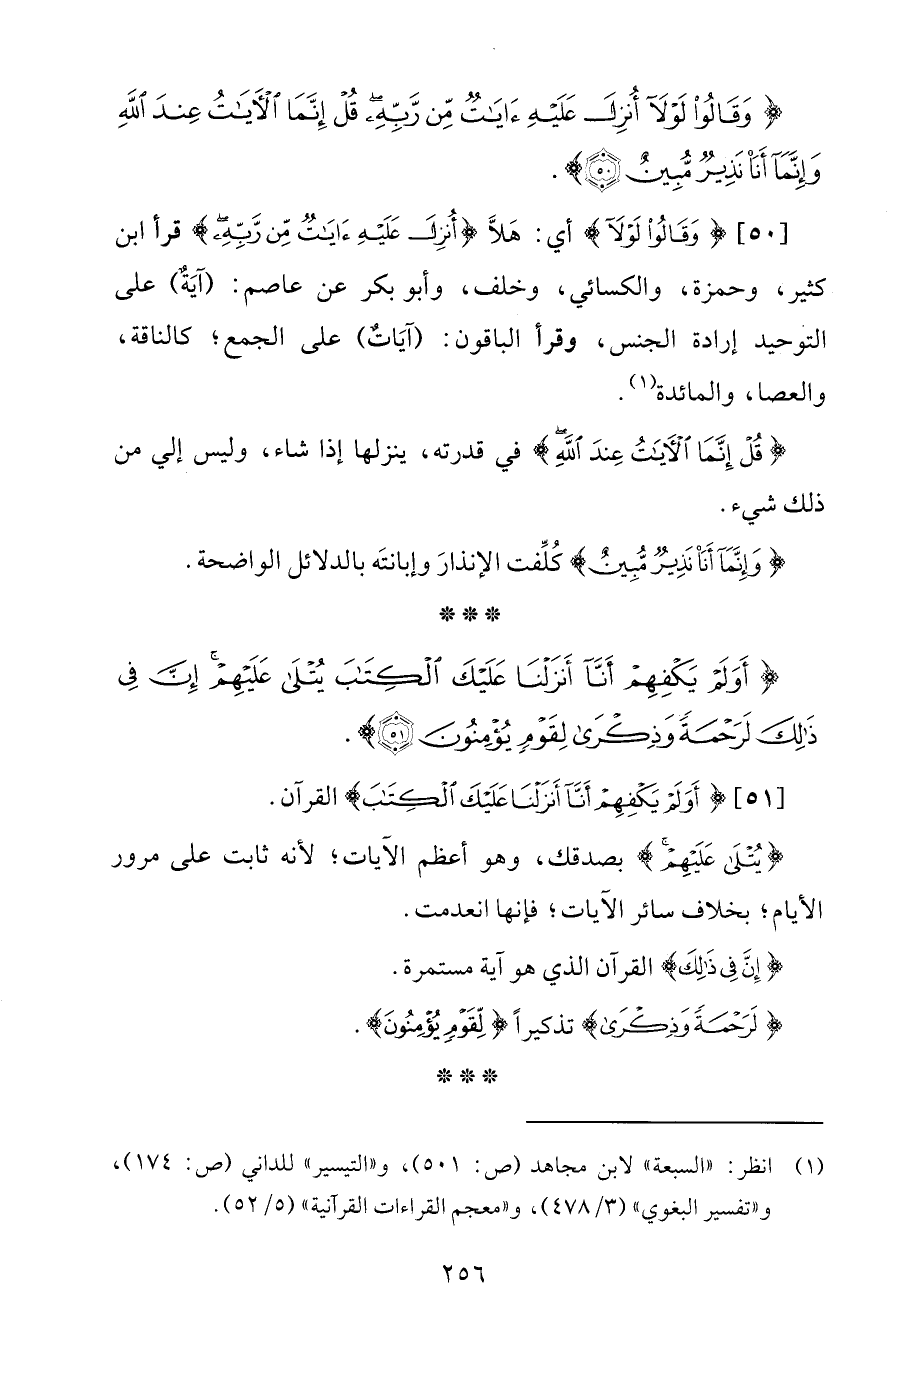 ﴿ وَقَالُوا۟ لَوْلَآ أُنزِلَ عَلَيْهِ ءَايَٰتٌ مِّن رَّبِّهِۦ ۖ قُلْ إِنَّمَا ٱلْءَايَٰتُ عِندَ ٱللَّهِ
وَإِنَّمَآ أَنَا۠ نَذِيرٌ مُّبِينٌ ٥٠﴾ .
[٥٠] ﴿ وَقَالُوا۟ لَوْلَآ ﴾ أي: هَلاَّ ﴿أُنزِلَ عَلَيْهِ ءَايَٰتٌ مِّن رَّبِّهِۦ ۖ ﴾ قرأ ابن
كثير، وحمزة، والكسائي، وخلف، وأبو بكر عن عاصم: (آيَةٌ) على
التوحيد إرادة الجنس، وقرأ الباقون: (آيَاتٌ) على الجمع؛ كالناقة،
والعصا، والمائدة(١).
﴿ قُلْ إِنَّمَا ٱلْءَايَٰتُ عِندَ ٱللَّهِ ۖ ﴾ في قدرته، ينزلها إذا شاء، وليس إلي من
ذلك شيء.
﴿ وَإِنَّمَآ أَنَا۠ نَذِيرٌ مُّبِينٌ ﴾ كُلِّفت الإنذارَ وإبانتَه بالدلائل الواضحة.
* * *
﴿ أَوَلَمْ يَكْفِهِمْ أَنَّآ أَنزَلْنَا عَلَيْكَ ٱلْكِتَٰبَ يُتْلَىٰ عَلَيْهِمْ ۚ إِنَّ فِى
ذَٰلِكَ لَرَحْمَةً وَذِكْرَىٰ لِقَوْمٍ يُؤْمِنُونَ ٥١﴾ .
[٥١] ﴿ أَوَلَمْ يَكْفِهِمْ أَنَّآ أَنزَلْنَا عَلَيْكَ ٱلْكِتَٰبَ﴾ القرآن.
﴿يُتْلَىٰ عَلَيْهِمْ ۚ ﴾ بصدقك، وهو أعظم الآيات؛ لأنه ثابت على مرور
الأيام؛ بخلاف سائر الآيات؛ فإنها انعدمت.
﴿ إِنَّ فِى ذَٰلِكَ﴾ القرآن الذي هو آية مستمرة.
﴿ لَرَحْمَةً وَذِكْرَىٰ﴾ تذكيراً ﴿ لِقَوْمٍ يُؤْمِنُونَ﴾ .
* * *
(١) انظر: «السبعة» لابن مجاهد (ص: ٥٠١)، و«التيسير» للداني (ص: ١٧٤)،
و«تفسير البغوي» (٣/ ٤٧٨)، و«معجم القراءات القرآنية» (٥/ ٥٢).
٢٥٦